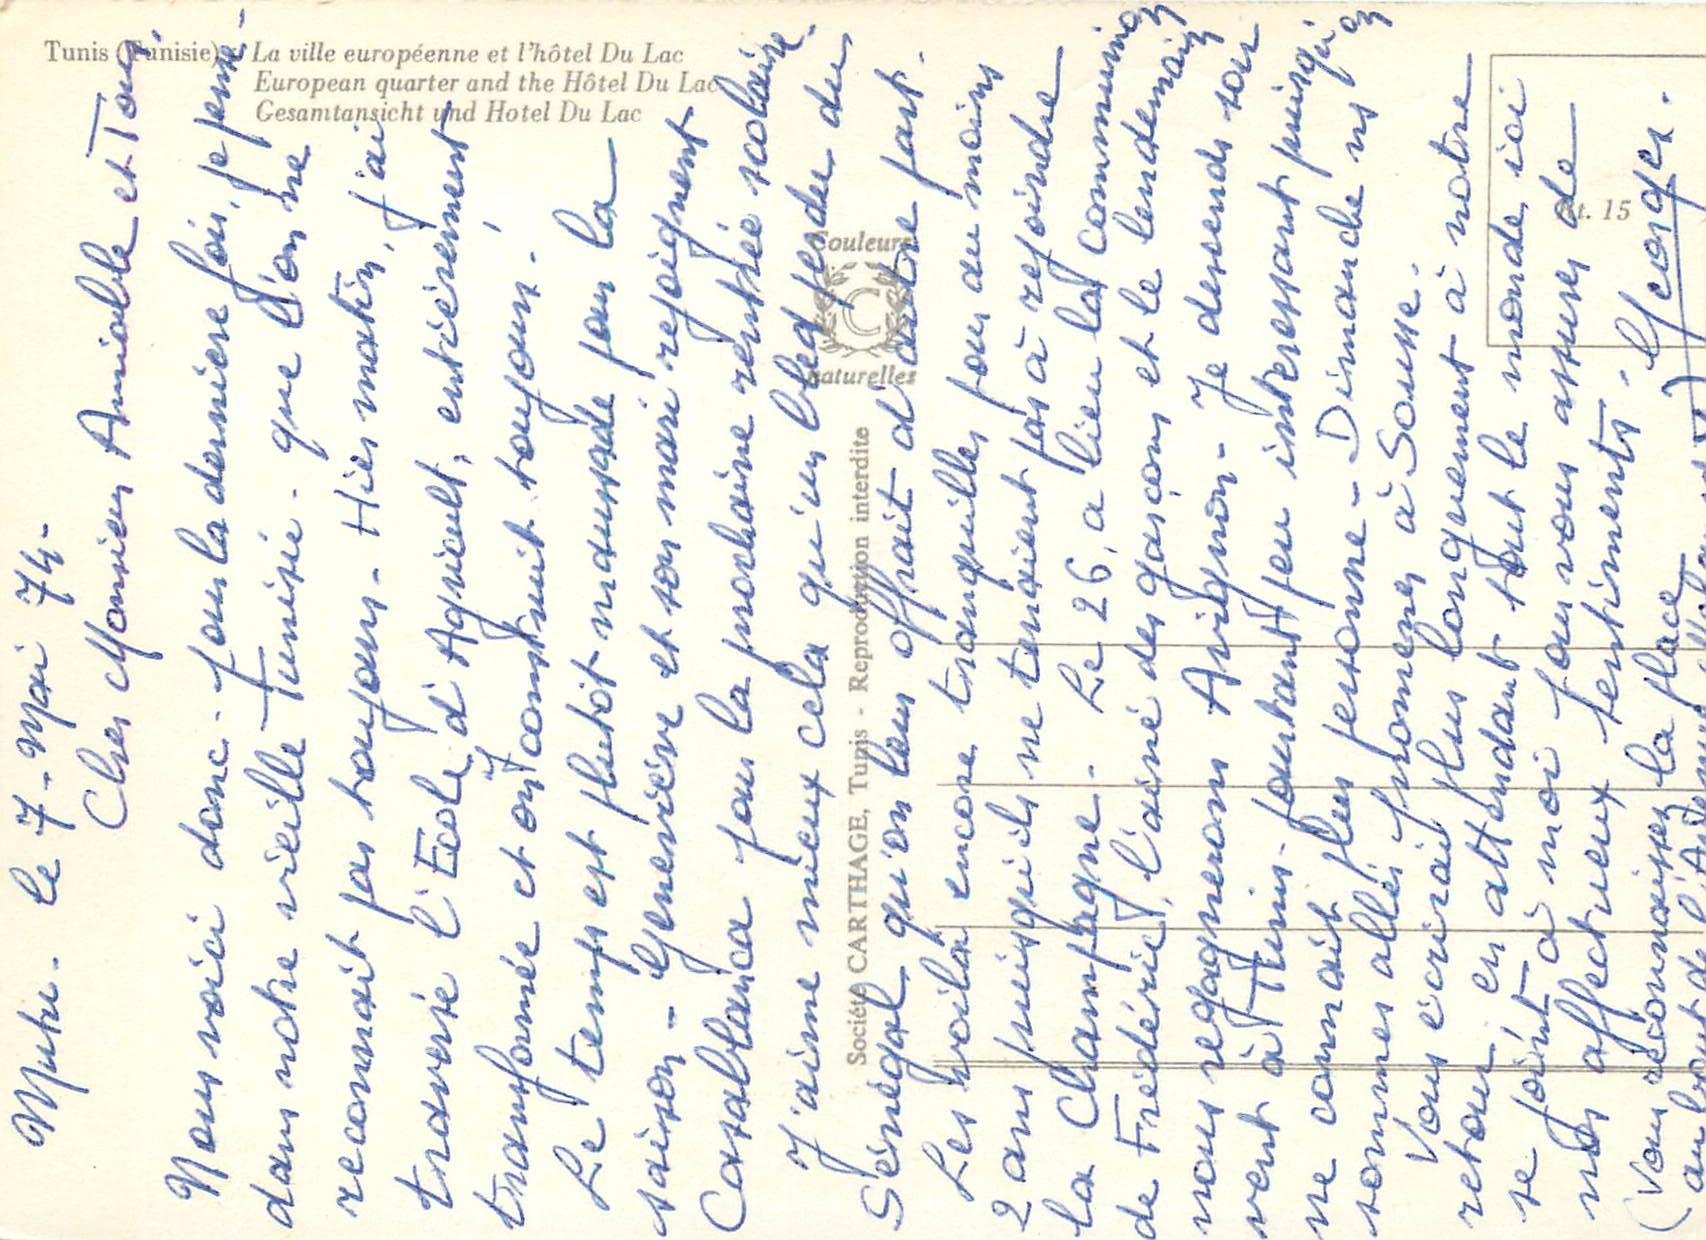 Tunis (Tunisie) - La ville européenne et l'hôtel Du Lac
European quarter and the Hôtel Du Lac
Gesamtansicht und Hotel Du Lac
Couleurs
naturelles
Société CARTHAGE, Tunis - Reproduction interdite
t. 15
le 7 - Mai 74.
Cher Monsieur Amiable et Tous.
Nous voici donc. pour la dernière fois, je pense -
dans notre vieille Tunisie. que l'on ne
reconnait pas toujours - Hier matin, j'ai
traversé l'Ecole d'Agricult, entièrement
transformée et où l'on construit toujours.
Le temps est plutôt maussade pour la
saison - Geneviève et son mari rejoignent
Casablanca pour la prochaine rentrée scolaire.
J'aime mieux cela qu'un bled perdu du
Sénégal qu'on leur offrait d'autre part.
Les voilà encore tranquilles pour au moins
2 ans puisqu'ils ne tenaient pas à rejoindre
la Champagne. Le 26, a lieu la communion
de Frédéric, l'ainé des garçons et le lendemain
nous regagnerons Avignon - Je descends sou
vent à Tunis. pourtant peu intéressant puisqu'on
ne connait plus personne - Dimanche ns
sommes allés promener à Sousse.
Vous écrirai plus longuement à notre
retour en attendant tout le monde, ici
se joint à moi pour vous assurer de
nos affectueux sentiments - Georges.
(Vous reconnaissez la place
au bout de l'Av.